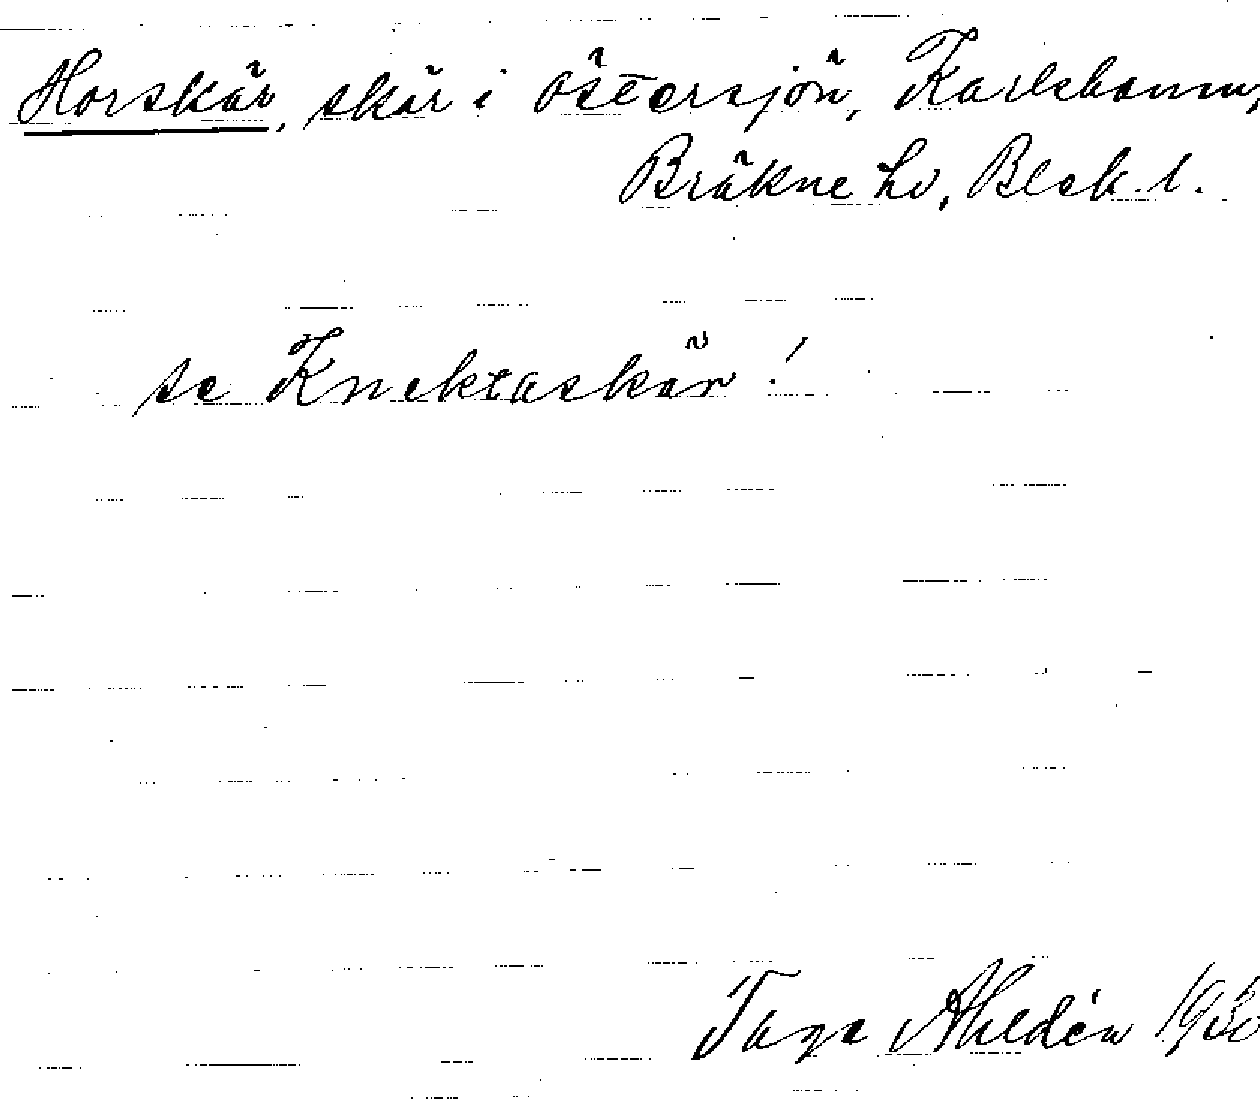 Horskär, skär i Östersjön, Karlshamn,
Bräkne hd, Blek. l.
se Knektaskär!
Tage Ahldén 1930